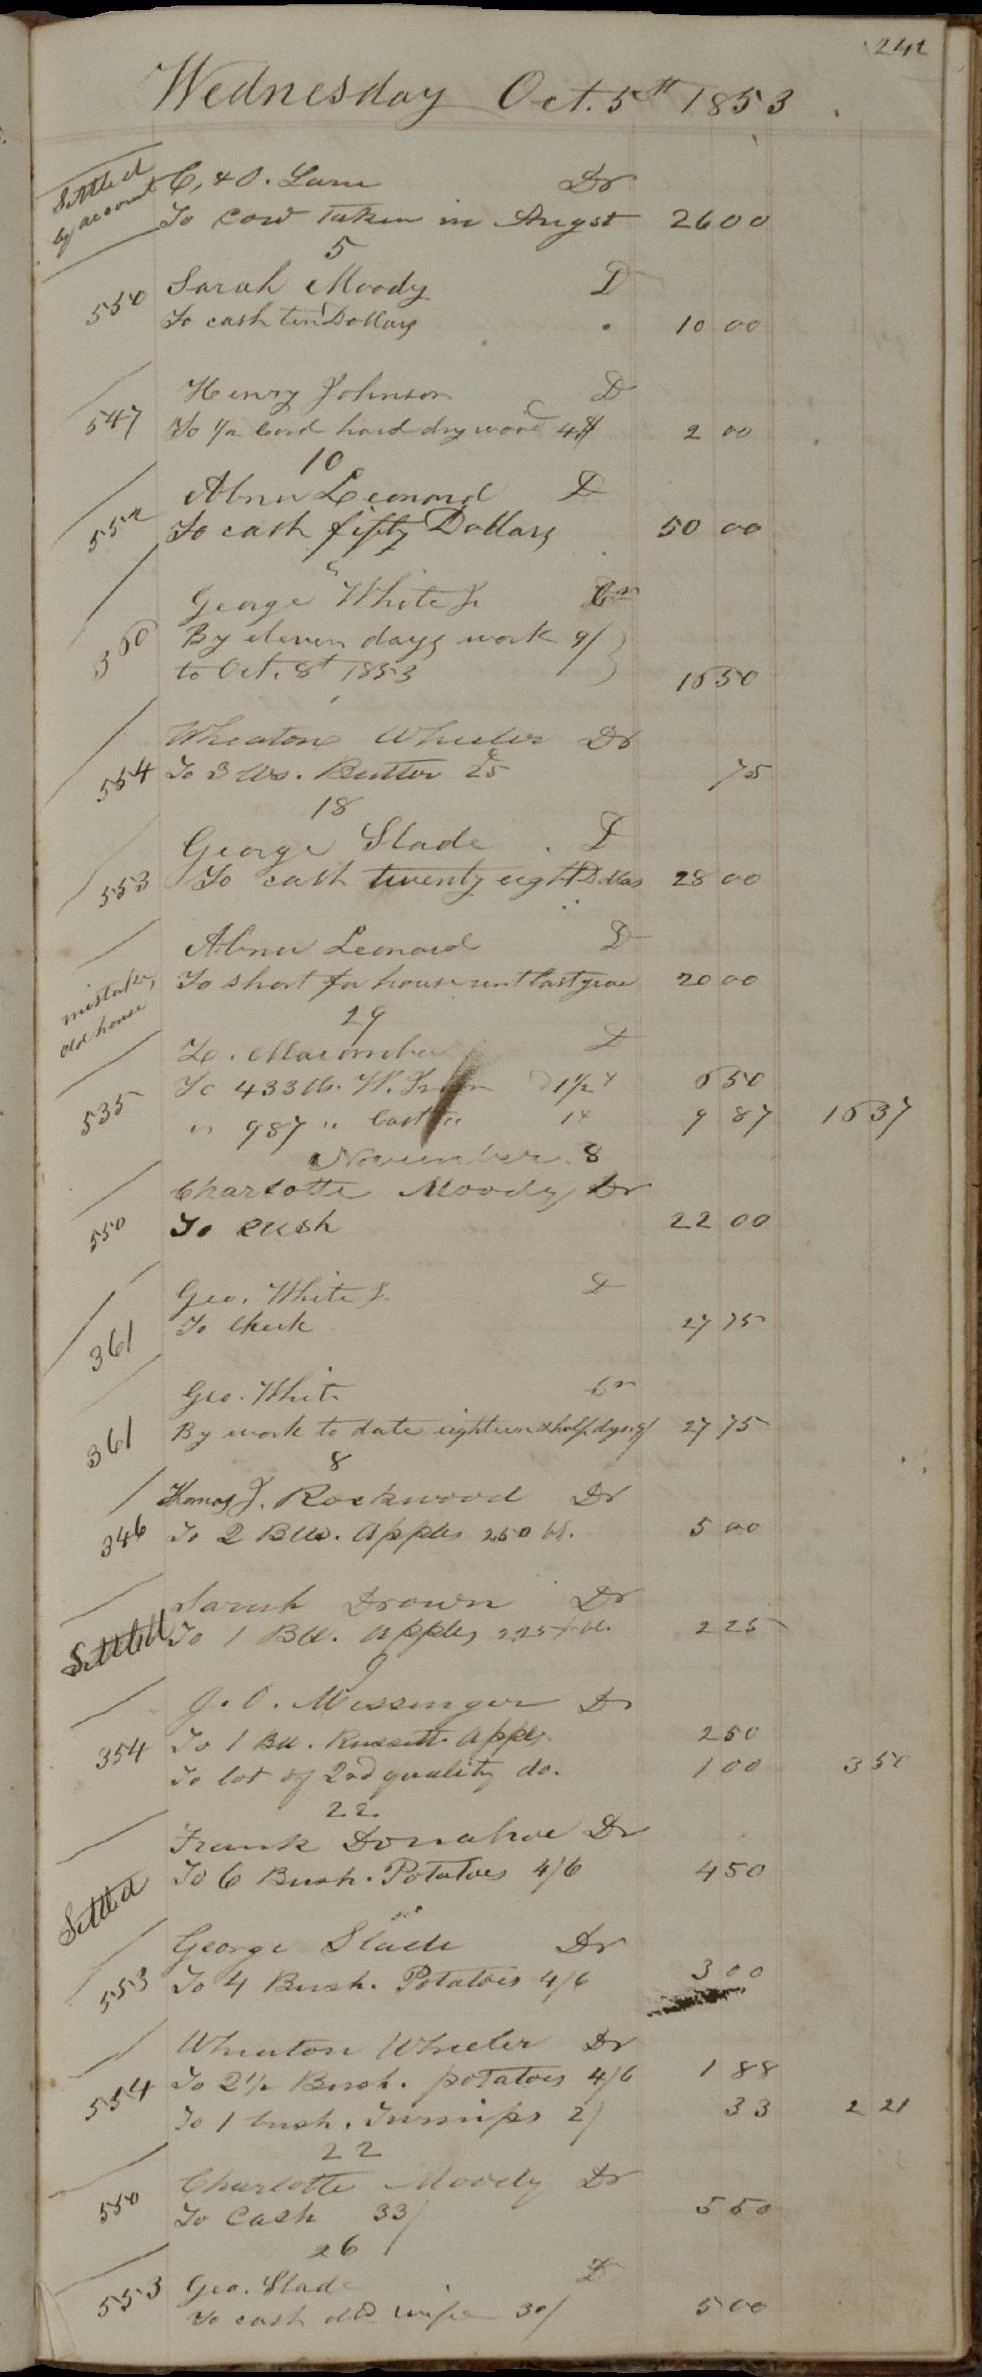 242
Wednesday Oct. 5th 1853
Settled by account
C, & O. Lane Dr
To cow taken in Augst 26 00
5
550 Sarah Moody D
To cash ten Dollars 10 00
Henry Johnson D
547 To 1/2 Cord hard dry wood 4$ 2 00
10
Abner Leonard D
552 To cash fifty Dollars 50 00
George White Jr Cr
360 By eleven days work 9/
to Oct. 8t 1853 16 50
Wheaton Wheeler Dr
554 To 3 lbs. Butter 25 75
18
George Slade D
553 To cash twenty eight Dollas 28 00
Abner Leonard D
mistake, old house
To short for house rent last year 20 00
29
L. Macomber D
535 To 433 lb. W. Iron 1 1/2 6 50
" 987 " Cast 1 9 87 16 37
November 8
Charlotte Moody Dr
550 To cash 22 00
Geo. White Jr D
361 To Check 27 75
Geo. White Cr
361 By work to date eighteen & half days 9/ 27 75
8
Thomas J. Rockwood Dr
346 To 2 Bbls. Apples 250 bl. 5 00
Sarah Drown Dr
Settled To 1 Bbl. apples 225 2 25
9
J. O. Messinger Dr
354 To 1 Bbl. Russett Apples 2 50
To lot of 2nd quality do. 1 00 3 50
22
Frank Donahoe Dr
Settled To 6 Bush. Potatoes 4/6 4 50
George Slade Dr
553 To 4 Bush. Potatoes 4/6 3 00
Wheaton Wheeler Dr
554 To 2 1/2 Bush. potatoes 4/6 1 88
To 1 bush. Turnips 2/ 33 2 21
22
Charlotte Moody Dr
550 To Cash 33/ 5 50
26
Geo. Slade D
553 To cash dld wife 30/ 5 00